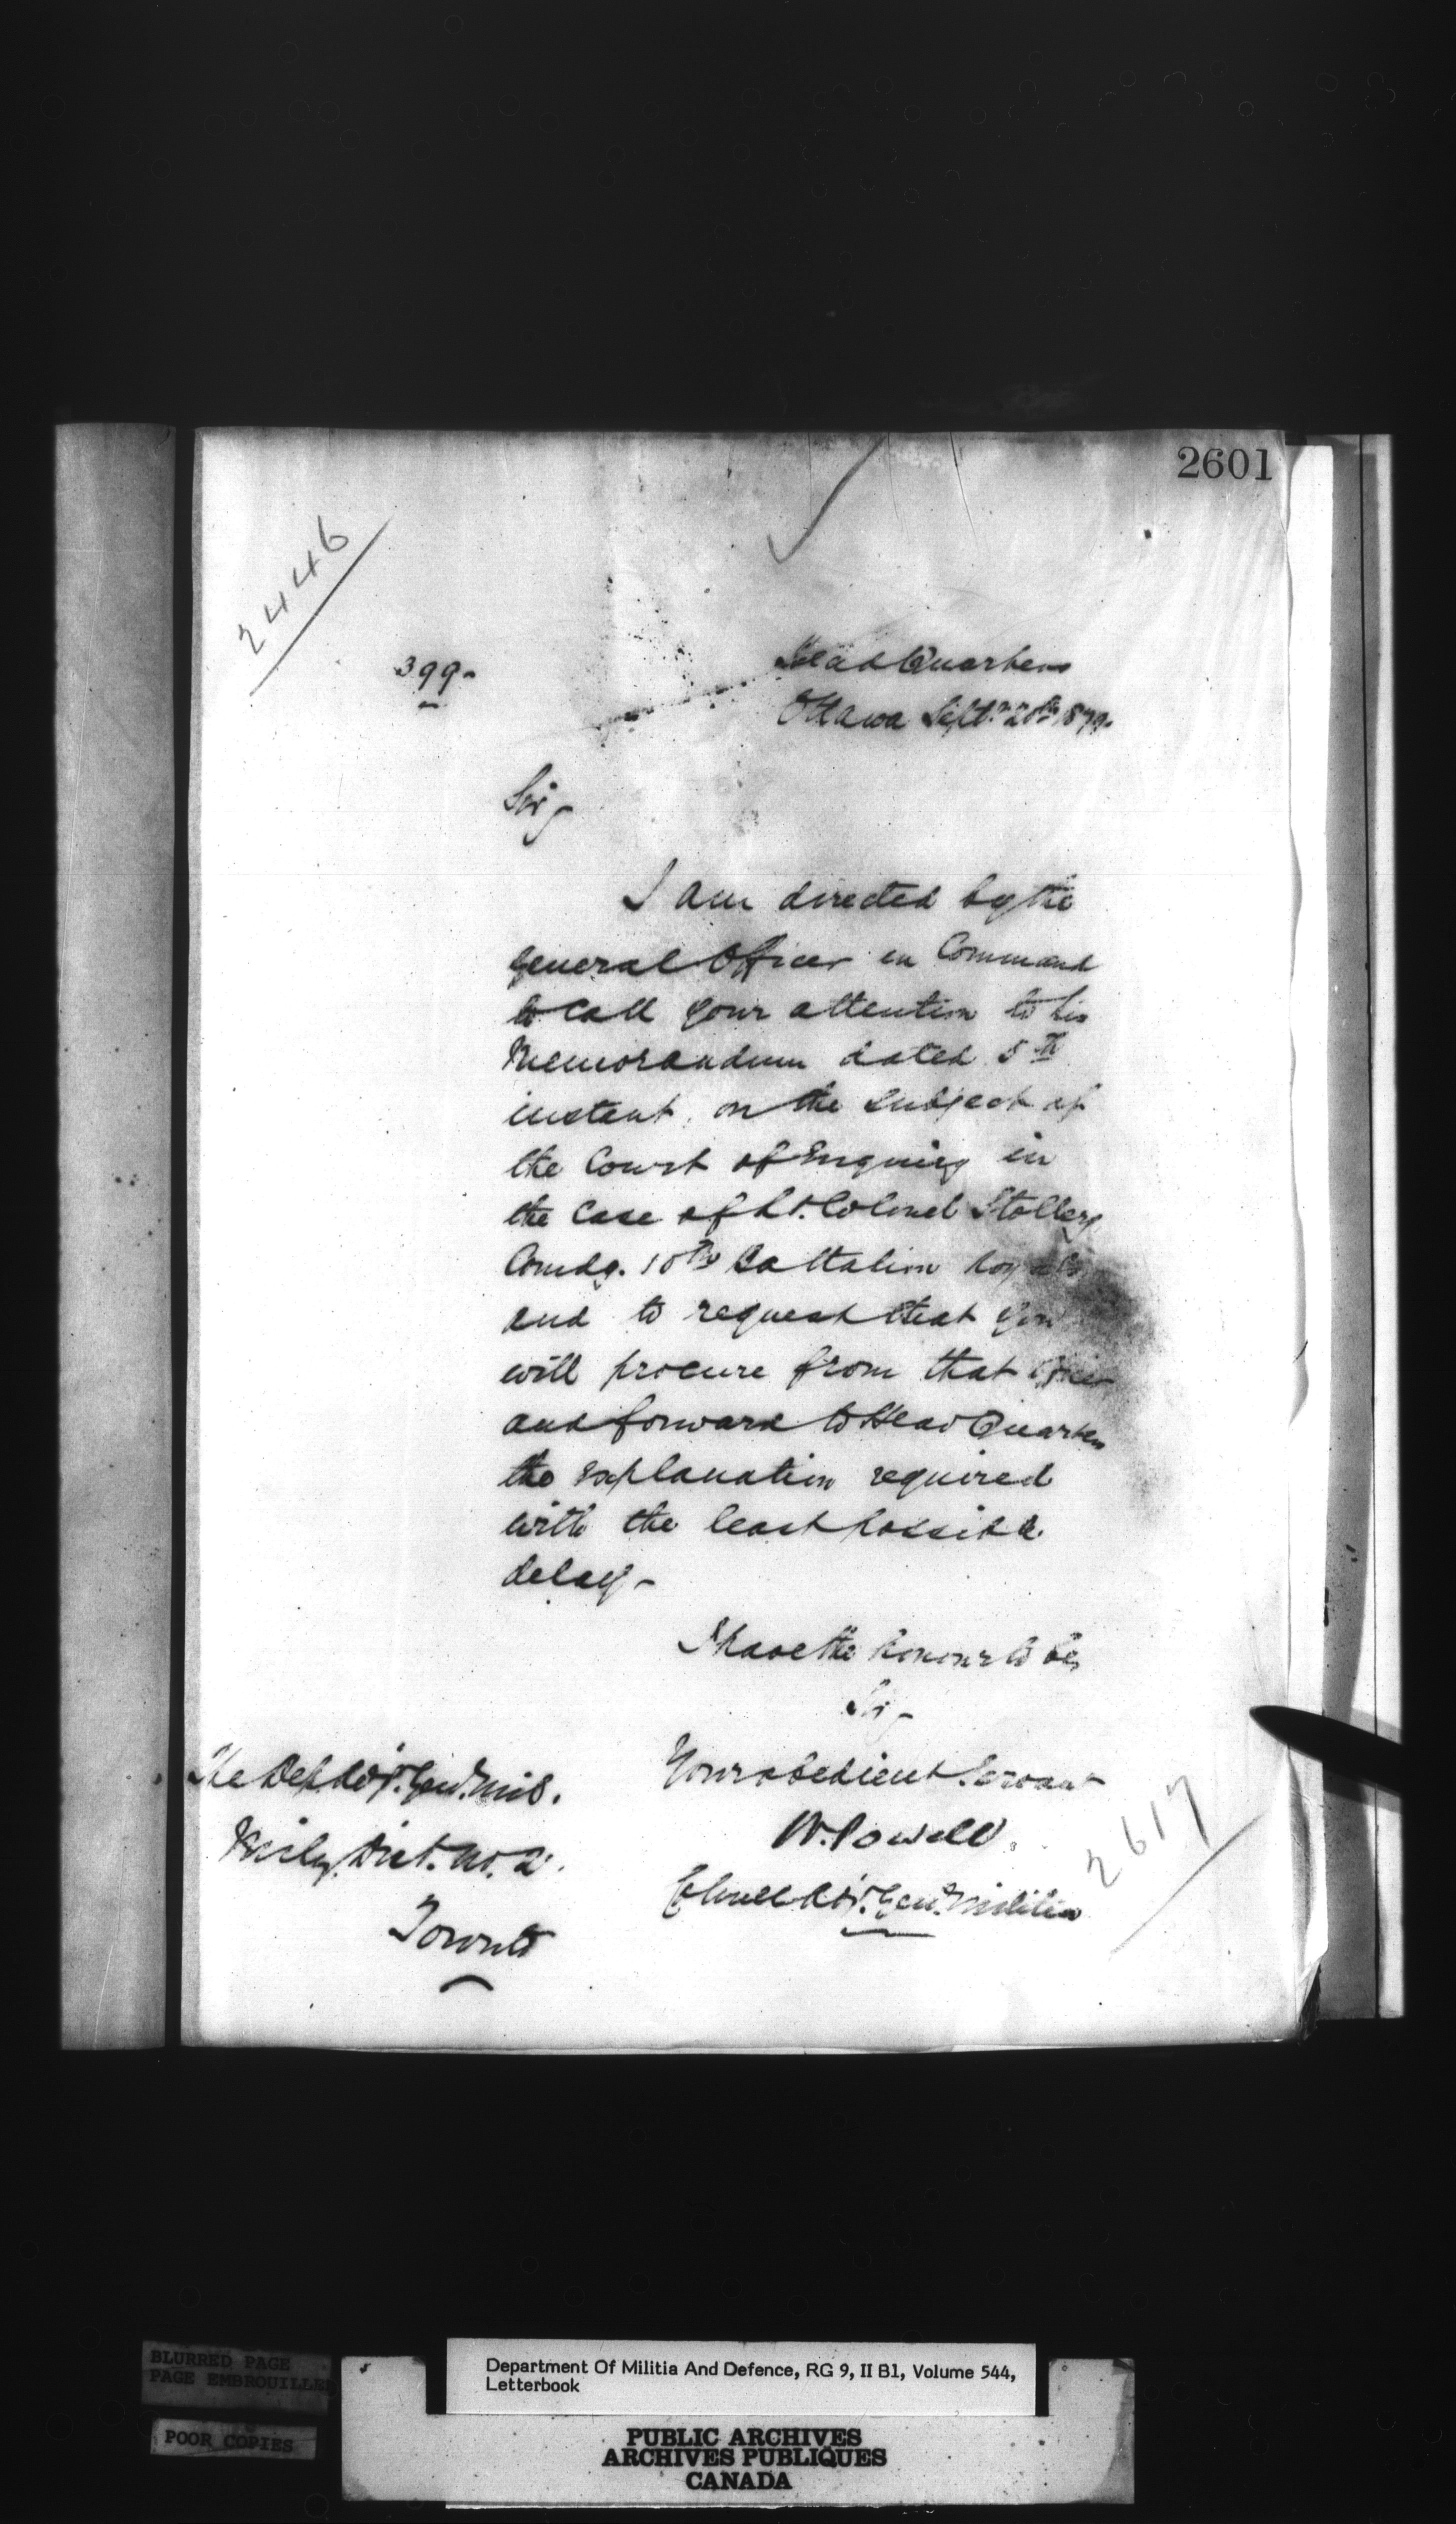 2601
2446
399-
Head Quarters
Ottawa Septr. 20th 1879.
Sir,
I am directed by the
General Officer in Command
to call your attention to his
Memorandum dated 5th
instant, on the subject of
the Court of Enquiry in
the case of Lt. Colonel Stollery
Comdg. 10th Battalion Royals
and to request that you
will procure from that Officer
and forward to Head Quarters
the explanation required
with the least possible
delay -
I have the honour to be,
Sir,
Your obedient Servant
W. Powell.
Colonel Adjt. Genl. Militia
The Dep. Adjt. Genl. Mil.
Mily. Dist. No. 2.
Toronto
2617
BLURRED PAGE
PAGE EMBROUILLEE
POOR COPIES
Department Of Militia And Defence, RG 9, II B1, Volume 544,
Letterbook
PUBLIC ARCHIVES
ARCHIVES PUBLIQUES
CANADA